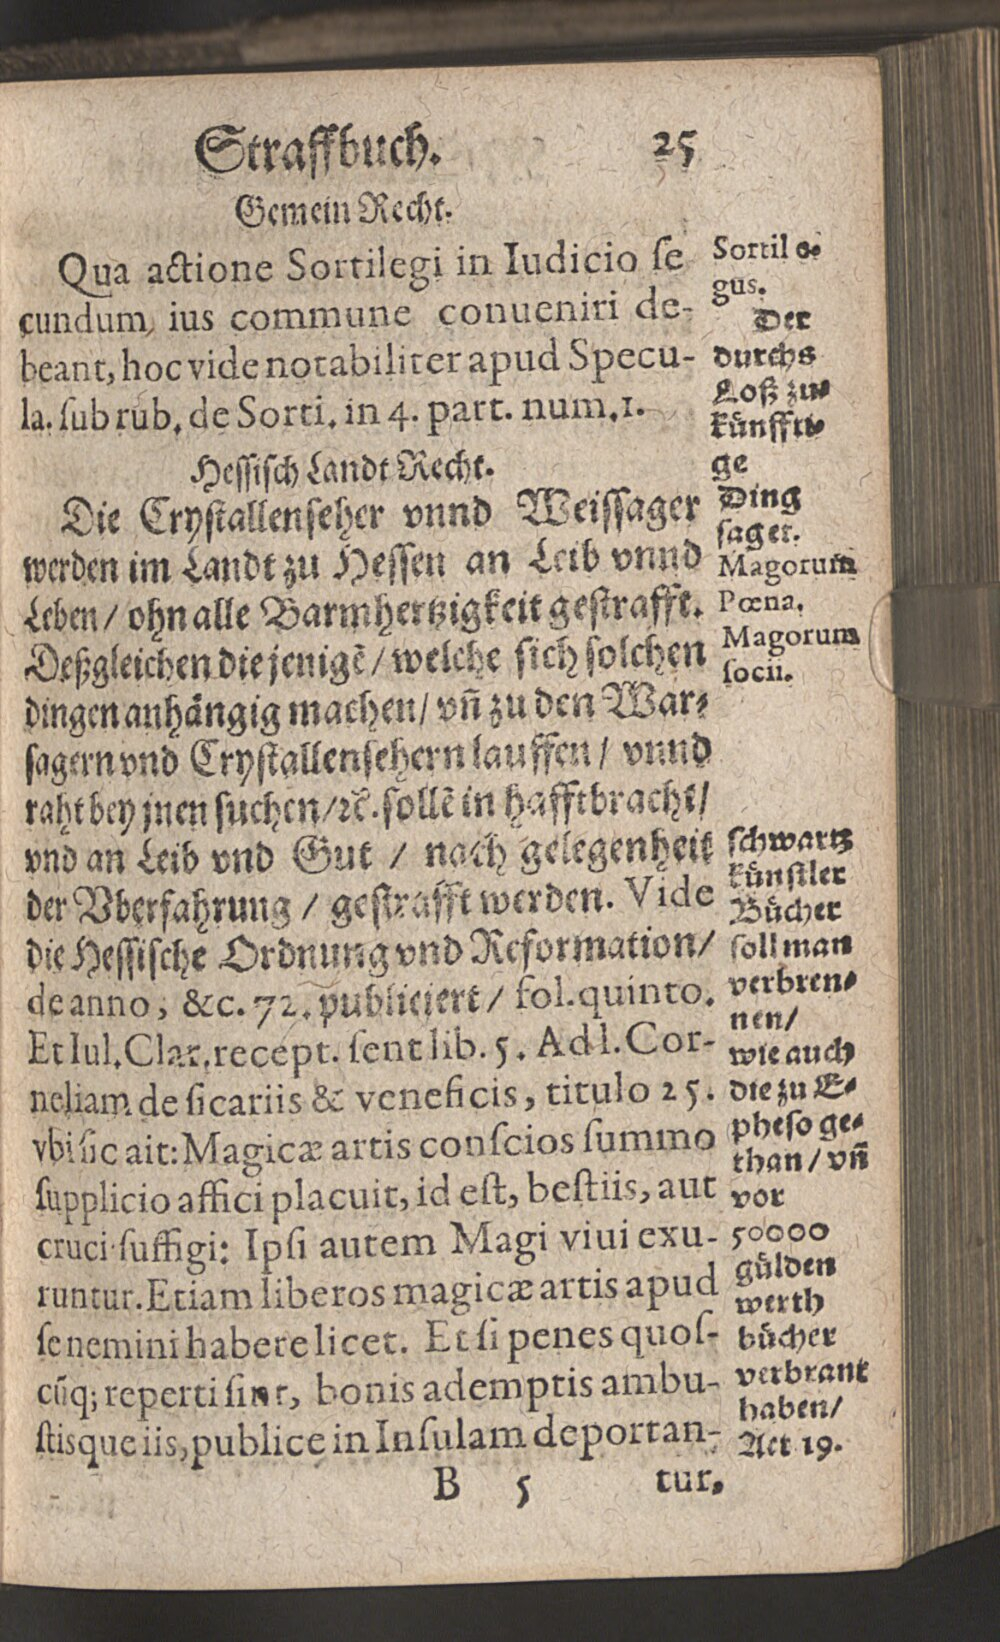 Straffbuch. 25
Gemein Recht.
Qua actione Sortilegi in Iudicio se
cundum, ius commune conueniri de-
beant, hoc vide notabiliter apud Specu-
la. sub rub. de Sorti. in 4. part. num. 1.
Hessisch Landt Recht.
Die Crystallenseher vnnd Weissager
werden im Landt zu Hessen an Leib vnnd
Leben / ohn alle Barmhertzigkeit gestrafft.
Deßgleichen die jenigẽ / welche sich solchen
dingen anhängig machen / vñ zu den War-
sagern vnd Crystallensehern lauffen / vnnd
raht bey jnen suchen / ꝛc̃. sollẽ in hafft bracht /
vnd an Leib vnd Gut / nach gelegenheit
der Vberfahrung / gestrafft werden. Vide
die Hessische Ordnung vnd Reformation /
de anno, &c. 72. publiciert / fol. quinto.
Et Iul. Clar. recept. sent lib. 5. Ad l. Cor-
neliam de sicariis & veneficis, titulo 25.
vbi sic ait: Magicæ artis conscios summo
supplicio affici placuit, id est, bestiis, aut
cruci suffigi: Ipsi autem Magi viui exu-
runtur. Etiam liberos magicæ artis apud
se nemini habere licet. Et si penes quos-
cũq; reperti sint, bonis ademptis ambu-
stisque iis, publice in Insulam deportan-
B 5 tur.
Sortile-
gus.
Der
durchs
Loß zu-
künffti-
ge
Ding
sager.
Magorum
Pœna.
Magorum
socii.
schwartz
künstler
Bücher
soll man
verbren-
nen /
wie auch
die zu E-
pheso ge-
than / vñ
vor
50000
gülden
werth
bücher
verbrant
haben /
Act 19.